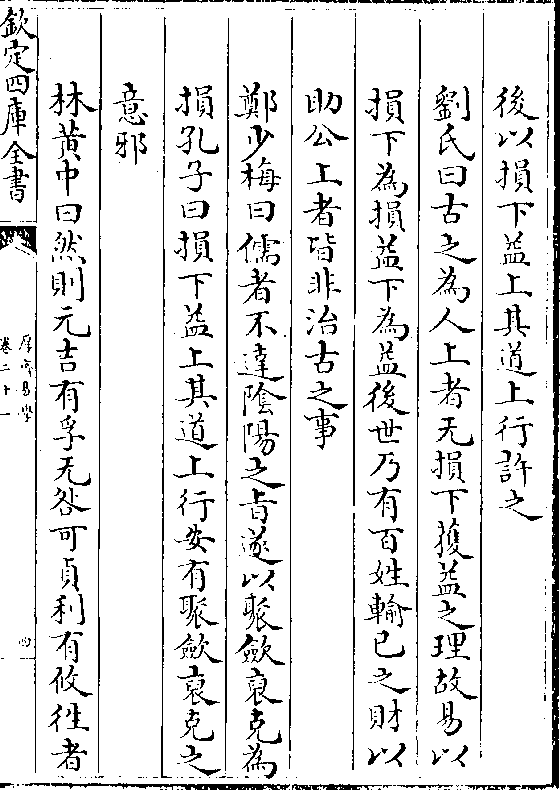 後以損下益上其道上行許之
劉氏曰古之為人上者无損下獲益之理故易以
損下為損益下為益後世乃有百姓輸已之財以
助公上者皆非治古之事
鄭少梅曰儒者不達隂陽之㫖遂以聚歛裒克為
損孔子曰損下益上其道上行安有聚歛裒克之
意邪
林黄中曰然則元吉有孚无咎可貞利有攸徃者
欽定四庫全書
厚齋易學
卷二十一
四